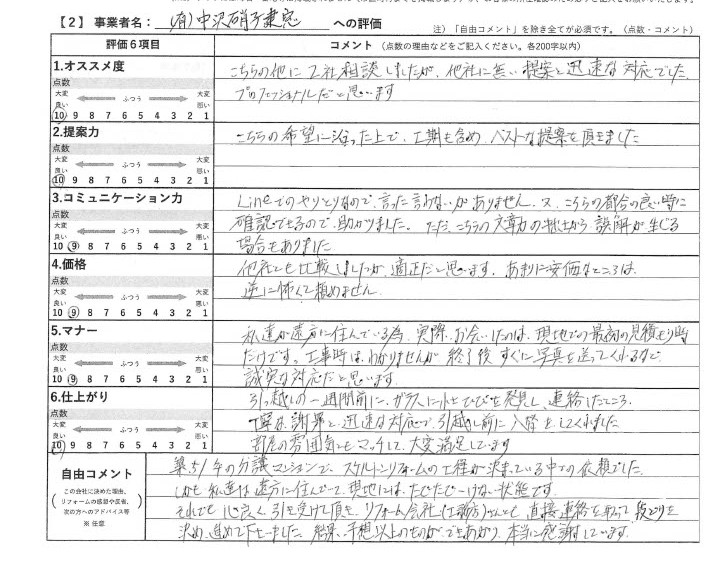 【2】 事業者名： (有)中沢硝子建窓 への評価
注）「自由コメント」を除き全てが必須です。（点数・コメント）
評価6項目
コメント （点数の理由などをご記入ください。各200字以内）
1.オススメ度
点数
大変良い ふつう 大変悪い
10 9 8 7 6 5 4 3 2 1
こちらの他に2社相談しましたが、他社に無い提案と迅速な対応でした。
プロフェッショナルだと思います
2.提案力
点数
大変良い ふつう 大変悪い
10 9 8 7 6 5 4 3 2 1
こちらの希望に沿った上で、工期も含め、ベストな提案を頂きました
3.コミュニケーション力
点数
大変良い ふつう 大変悪い
10 9 8 7 6 5 4 3 2 1
Lineでのやりとりなので、言った言わないがありません。又、こちらの都合の良い時に
確認できるので、助かりました。ただ、こちらの文章力の無さから誤解が生じる
場合もありました
4.価格
点数
大変良い ふつう 大変悪い
10 9 8 7 6 5 4 3 2 1
他社とも比較しましたが、適正だと思います。あまりに安価なところは、
逆に怖くて頼めません。
5.マナー
点数
大変良い ふつう 大変悪い
10 9 8 7 6 5 4 3 2 1
私達が遠方に住んでいる為、実際、お会いしたのは、現地での最初の見積もり時
だけです。工事時はわかりませんが、終了後すぐに写真を送ってくれるなど、
誠実な対応だと思います。
6.仕上がり
点数
大変良い ふつう 大変悪い
10 9 8 7 6 5 4 3 2 1
引っ越しの一週間前に、ガラスにヒビを発見し、連絡したところ、
丁寧な謝罪と迅速な対応で、引越し前に入替をしてくれました
部屋の雰囲気ともマッチして、大変満足しています
自由コメント
この会社に決めた理由、
リフォームの感想や反省、
次の方へのアドバイス等
※ 任意
築51年の分譲マンションで、スケルトンリフォームの工程が決まっている中での依頼でした。
しかも私達は遠方に住んでいて、現地にはたびたび行けない状態です。
それでも心良く引き受けて頂き、リフォーム会社(工務店)さんとも直接連絡を取って段どりを
決め、進めて下さいました。結果、予想以上のものができあがり、本当に感謝しています。